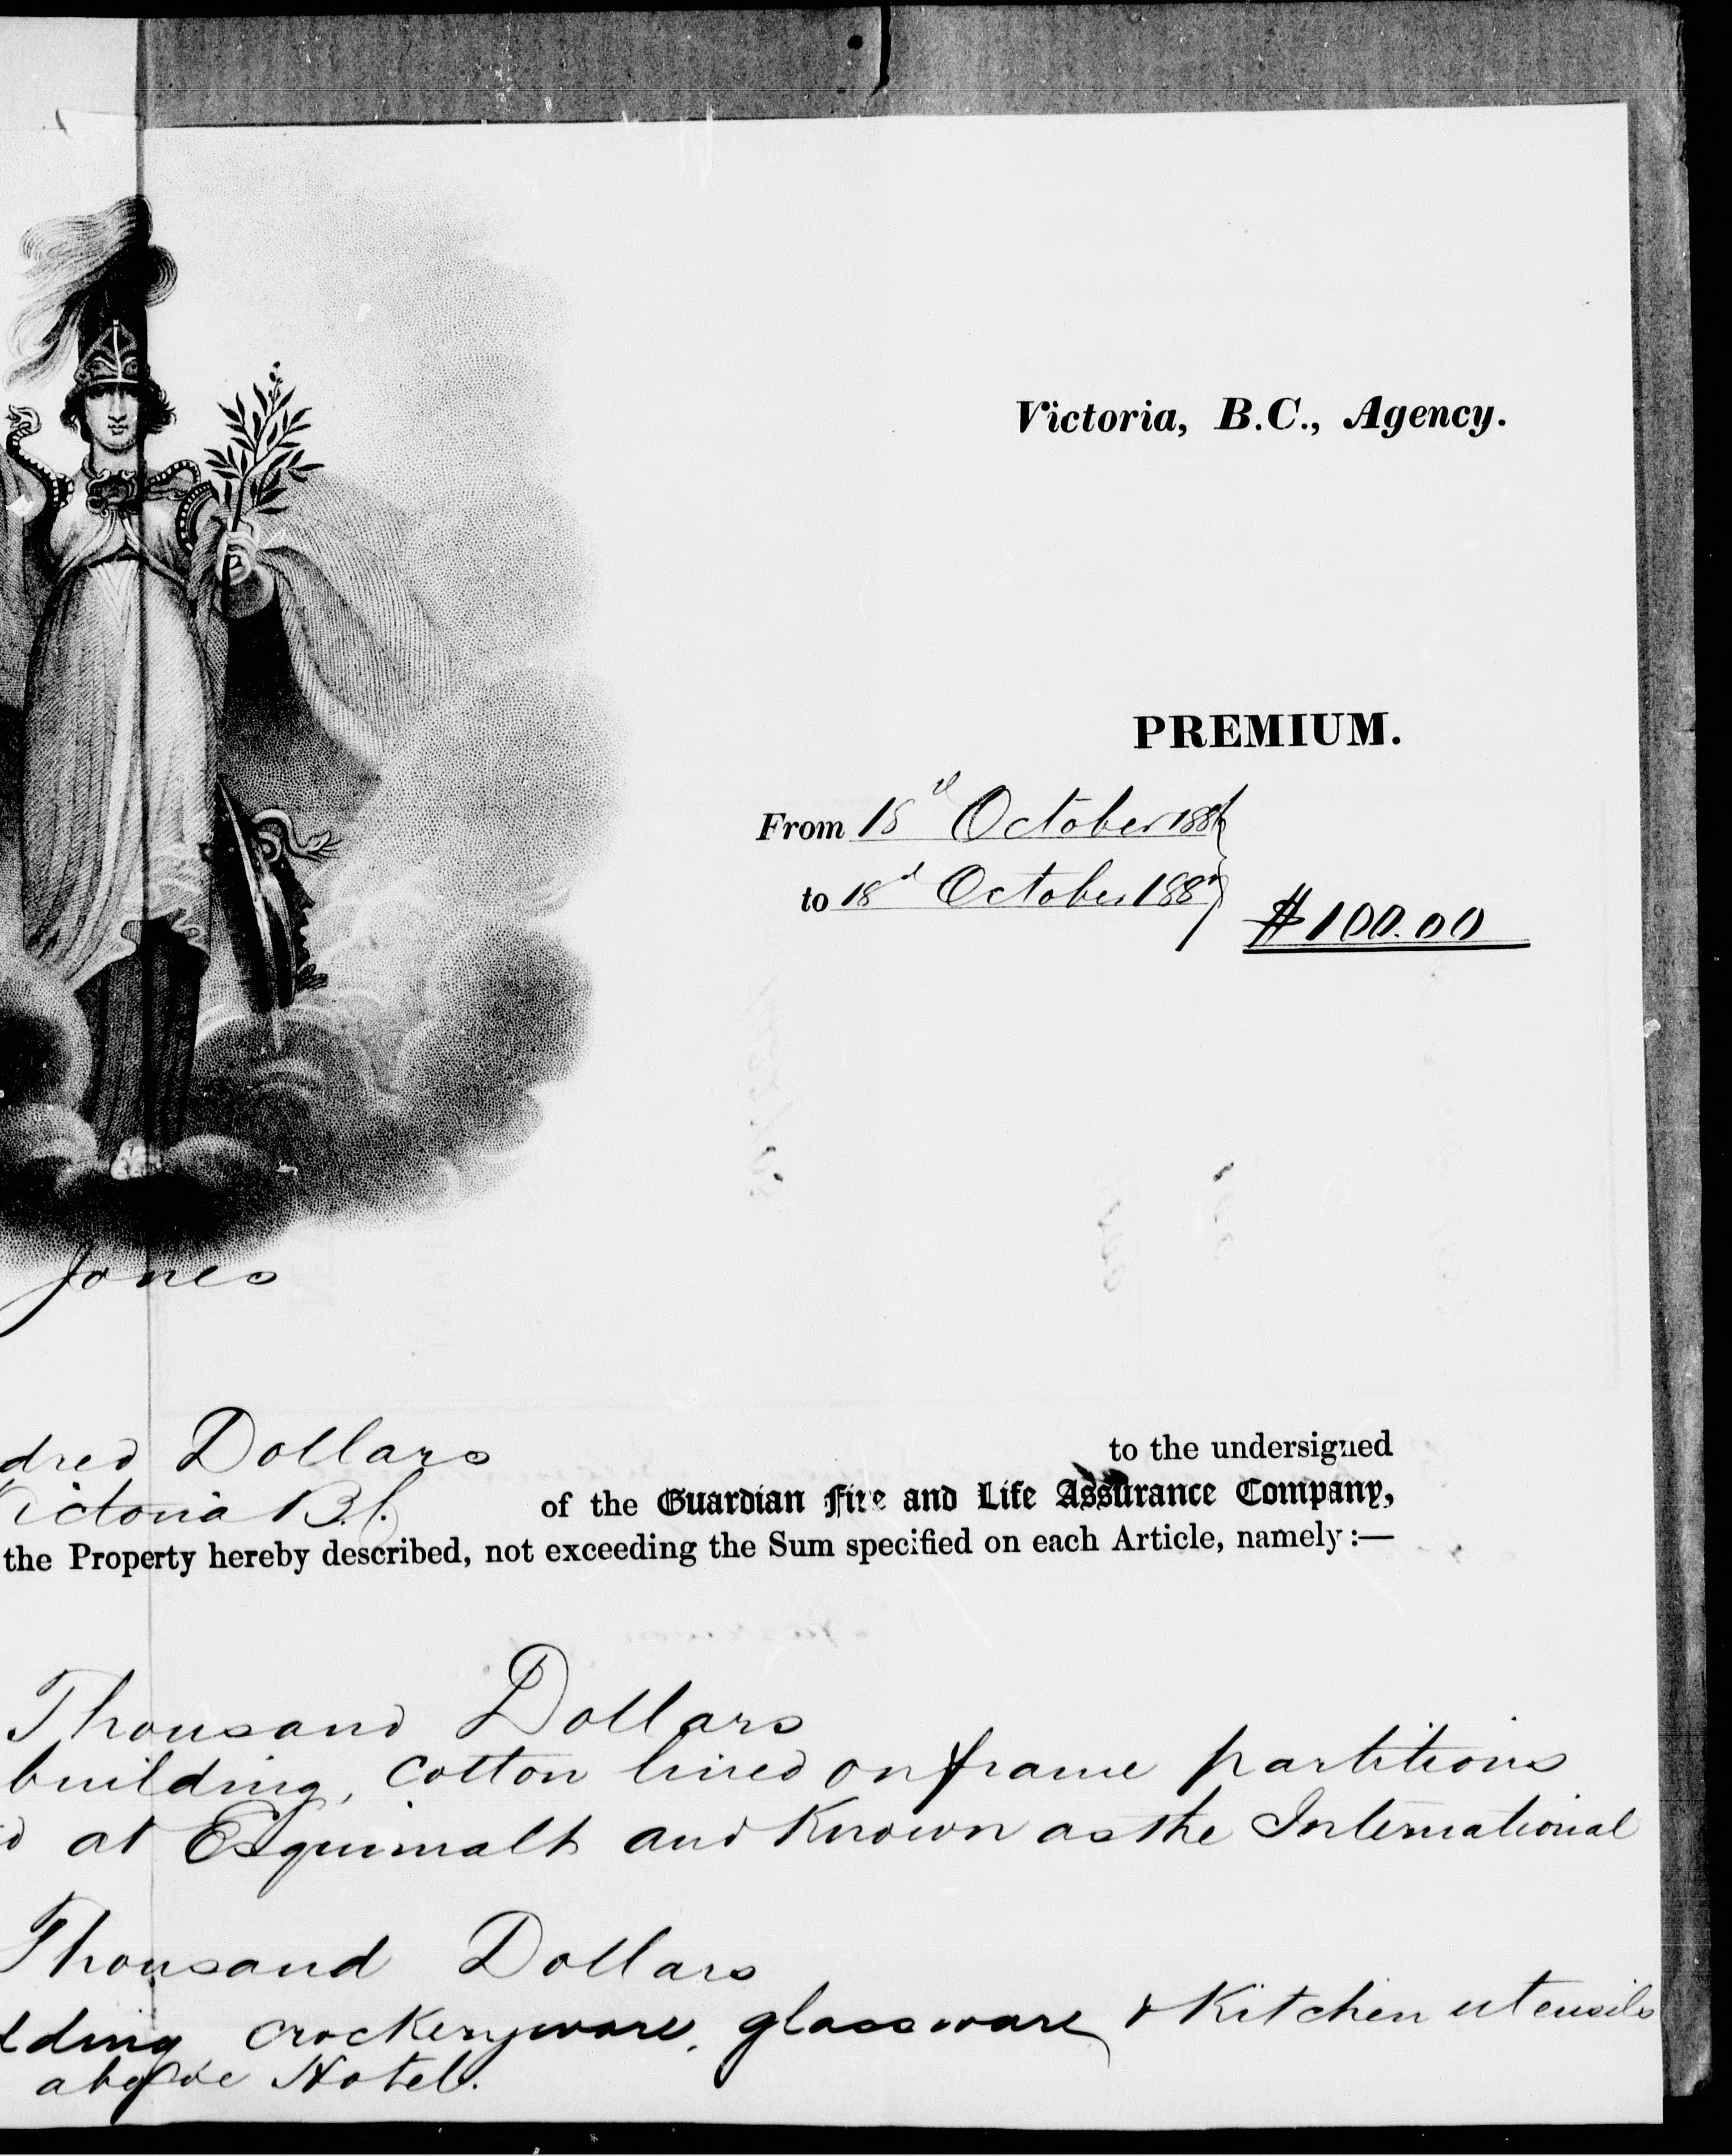 Victoria, B.C., Agency.
PREMIUM.
From 18th October 1886
to 18th October 1887
$100.00
Jones
dred Dollars
to the undersigned
Victoria B.C.
of the Guardian Fire and Life Assurance Company,
the Property hereby described, not exceeding the Sum specified on each Article, namely:—
Thousand Dollars
building, Cotton lined on frame partitions
d at Esquimalt and Known as the International
Thousand Dollars
dding crockeryware, glassware & Kitchen utensils
above Hotel.